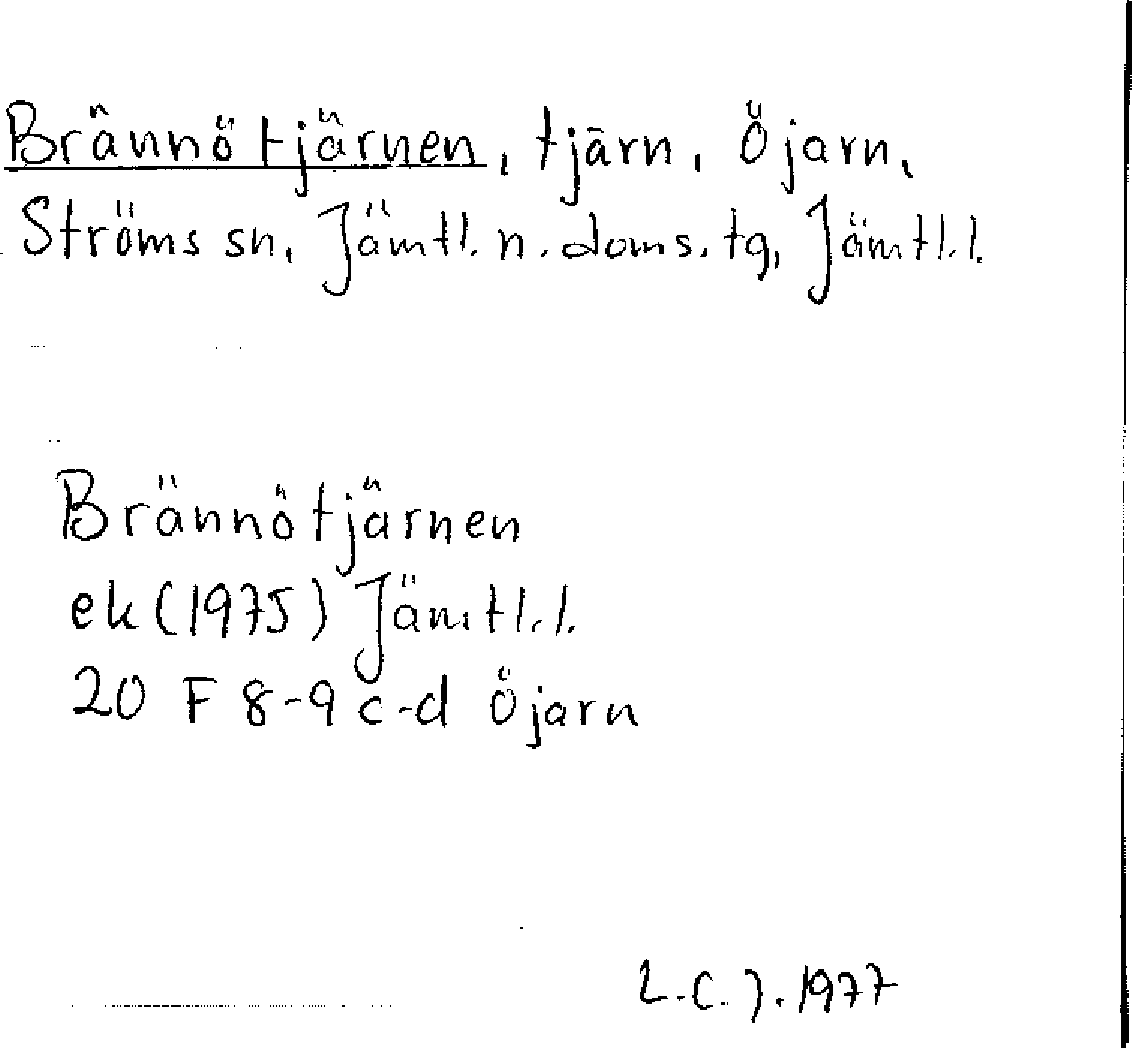 Brännötjärnen, tjärn, Öjarn,
Ströms sn, Jämtl. n. doms. tg, Jämtl. l.
Brännötjärnen
ek (1975) Jämtl. l.
20 F 8-9 c-d Öjarn
L.C.J. 1977